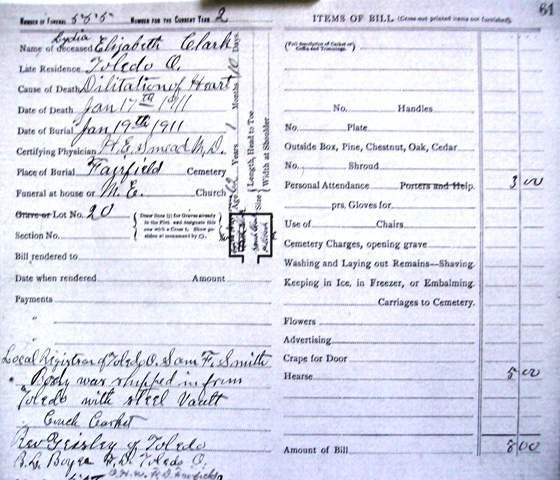 NUMBER OF FUNERAL 555 NUMBER FOR THE CURRENT YEAR 2
Lydia
Name of deceased Elizabeth Clark
Late Residence Toledo O.
Cause of Death Dilitation of Heart
Date of Death Jan 17th 1911
Date of Burial Jan 19th 1911
Certifying Physician H. E. Smead M.D.
Place of Burial Fairfield Cemetery
Funeral at house or M. E. Church
Grave or Lot No. 20
Section No.
Draw lines for Graves already in the Plot and designate this one with a Cross
Bill rendered to
Date when rendered Amount
Payments
"
Local Registrar of Toledo O. Sam F. Smith
Body was shipped in from
Toledo with steel Vault
Couch Casket
Rev Geisley of Toledo
B. L. Boyer F. D. Toledo O.
Age Years 1 Months 10 Days
Size Length, Head to Toe
Width at Shoulder
61
ITEMS OF BILL (Cross out printed items not furnished).
(Full description of Casket or Coffin and Trimmings.)
No. Handles
No. Plate
Outside Box, Pine, Chestnut, Oak, Cedar
No. Shroud
Personal Attendance Porters and Help. 3 00
prs. Gloves for
Use of Chairs
Cemetery Charges, opening grave
Washing and Laying out Remains—Shaving.
Keeping in Ice, in Freezer, or Embalming.
Carriages to Cemetery.
Flowers
Advertising
Crape for Door
Hearse 5 00
Amount of Bill 8 00